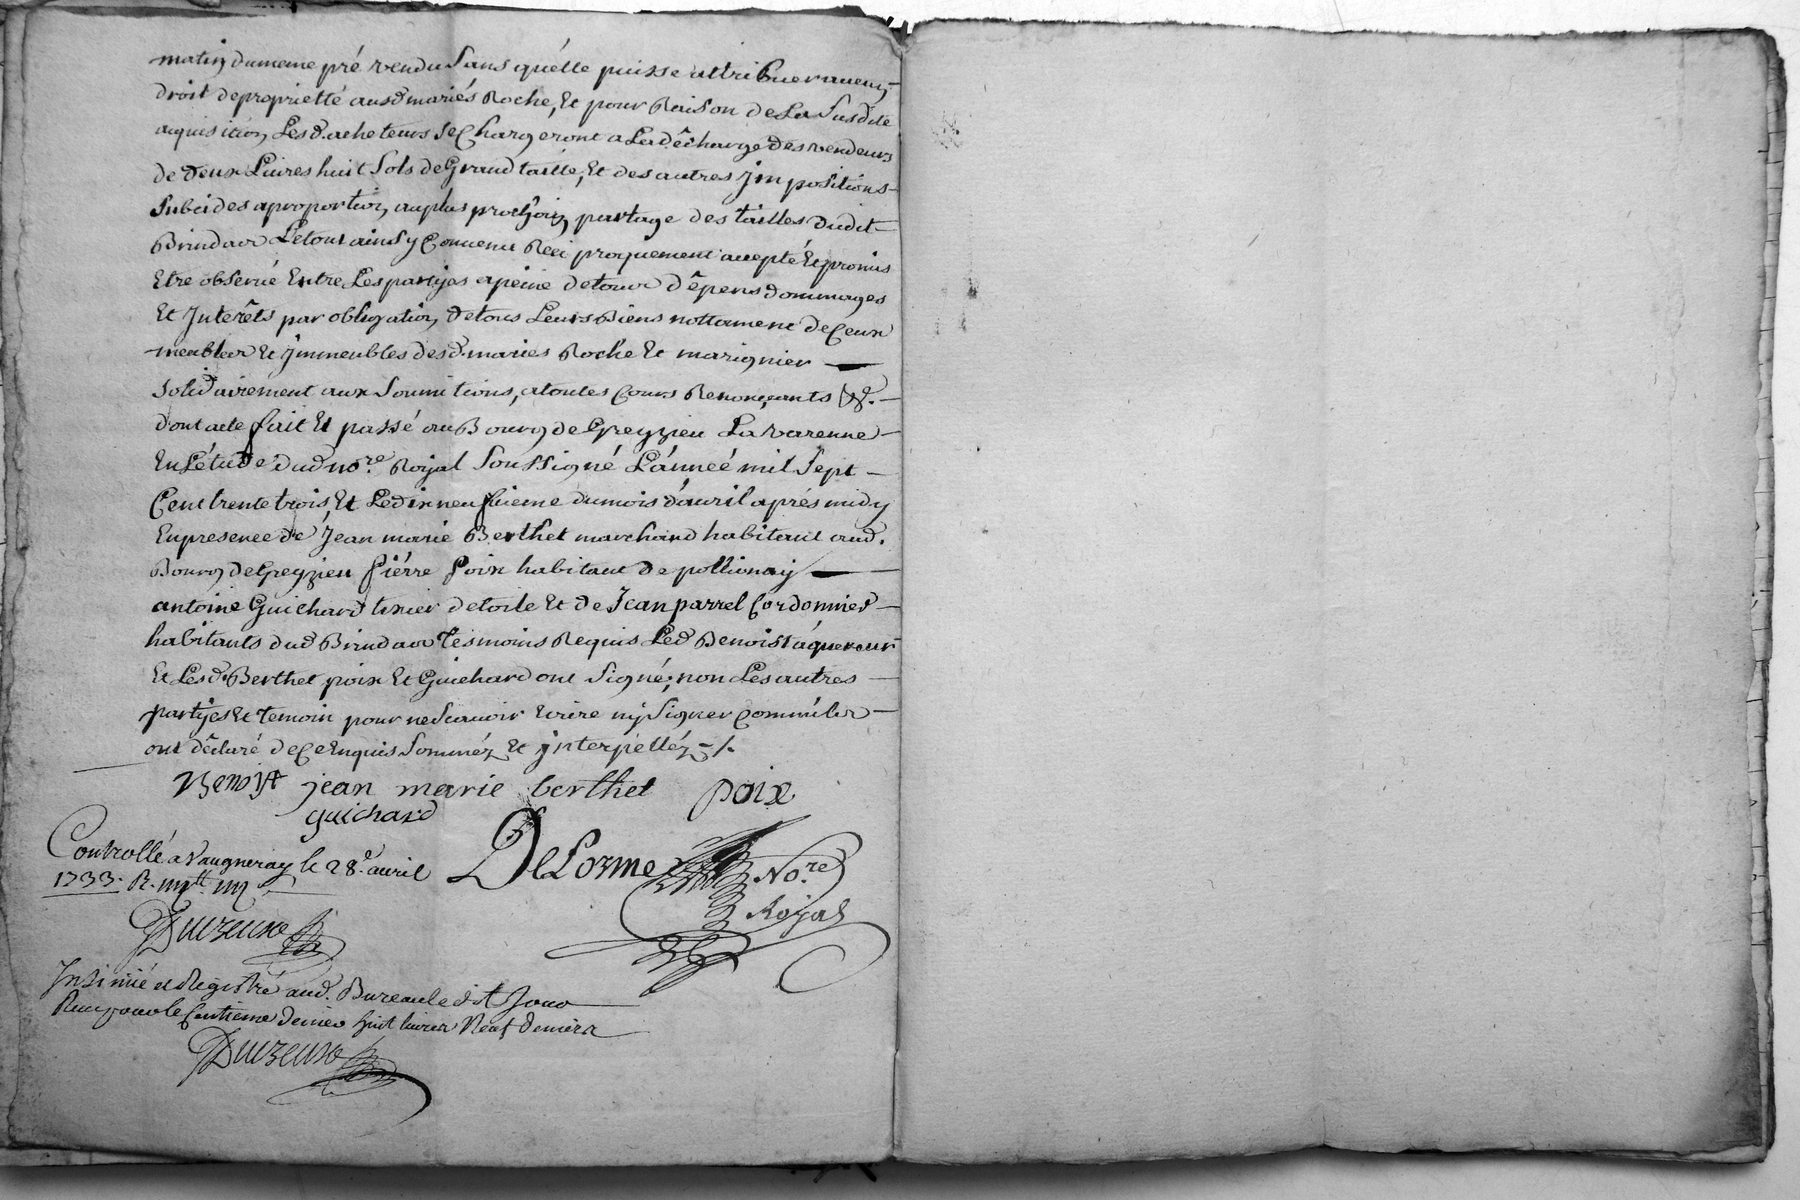 matin dumeme pré vendu Sans quélle puisse attribuer aucun
droit deproprietté ausd mariés Roche, Et pour Raison deLa Susdite
aquisition Lesd. acheteurs Se Chargeront a Ladécharge des vendeurs
de deux Livres huit Sols de Grand taille, Et des autres Jmpositions
Subcides aproportion auplus prochain partage des tailles dudit
Brindaor Letout ainsy Convenu Reciproquement accepté Et promis
Etre observé Entre Les partyes apeine detour dépens dommages
Et Jnterêts par obligation detous Leurs Biens nottament deCeux
meubler Et Jmmeubles desd. mariés Roche Et marignier
Solidairement aux Soumitions, atoutes Cours Renonçants &c.
dont acte fait Et passé au Bourg de Greyzieu La varenne
En Létude dud nore. Royal Soussigné L'année mil Sept
Cent trente trois, Et Ledixneufvieme dumois d'avril aprés midy
En presence de Jean marie Berthet marchand habitant aud.
Bourg de Greyzieu piérre poix habitant de pollionay
antoine Guichard tixier detoile Et de Jean parrel Cordonnier
habitants dud Brindaor tesmoins Requis Led Benoist aquereur
Et Lesd. Berthet poix Et Guichard ont Signé; non Les autres
partyes Et temoin pour nesçavoir Ecrire ny Signer Comm'iler
ont déclaré deCe Enquis Sommez Et Jnterpelléz ·/.
Benoist jean marie berthet poix
guichard
Controllé a Vaugneray le 28e. avril DeLorme Nore
1733. R. Royal
Duizeuxo
Insinué et Registré aud. Bureau ledit Jour
Reçu pour le Centieme denier huit livres Neuf deniers
Duizeuxo